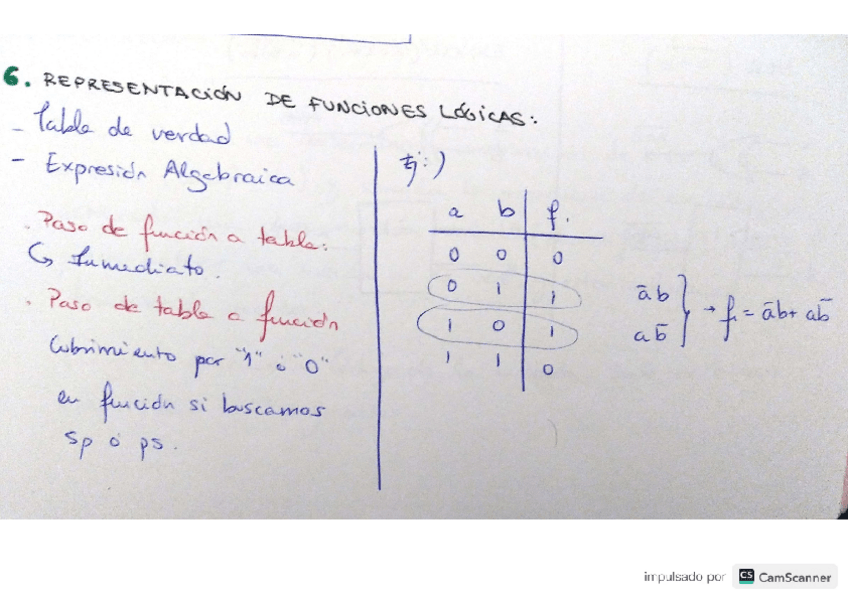 6. REPRESENTACIÓN DE FUNCIONES LÓGICAS:
- Tabla de verdad
- Expresión Algebraica
. Paso de función a tabla:
↳ Inmediato.
. Paso de tabla a función
Cubrimiento por "1" ó "0"
en función si buscamos
sp ó ps.
Ej:)
a b f.
0 0 0
0 1 1
1 0 1
1 1 0
āb
ab̄
} → f = āb + ab̄
impulsado por CS CamScanner